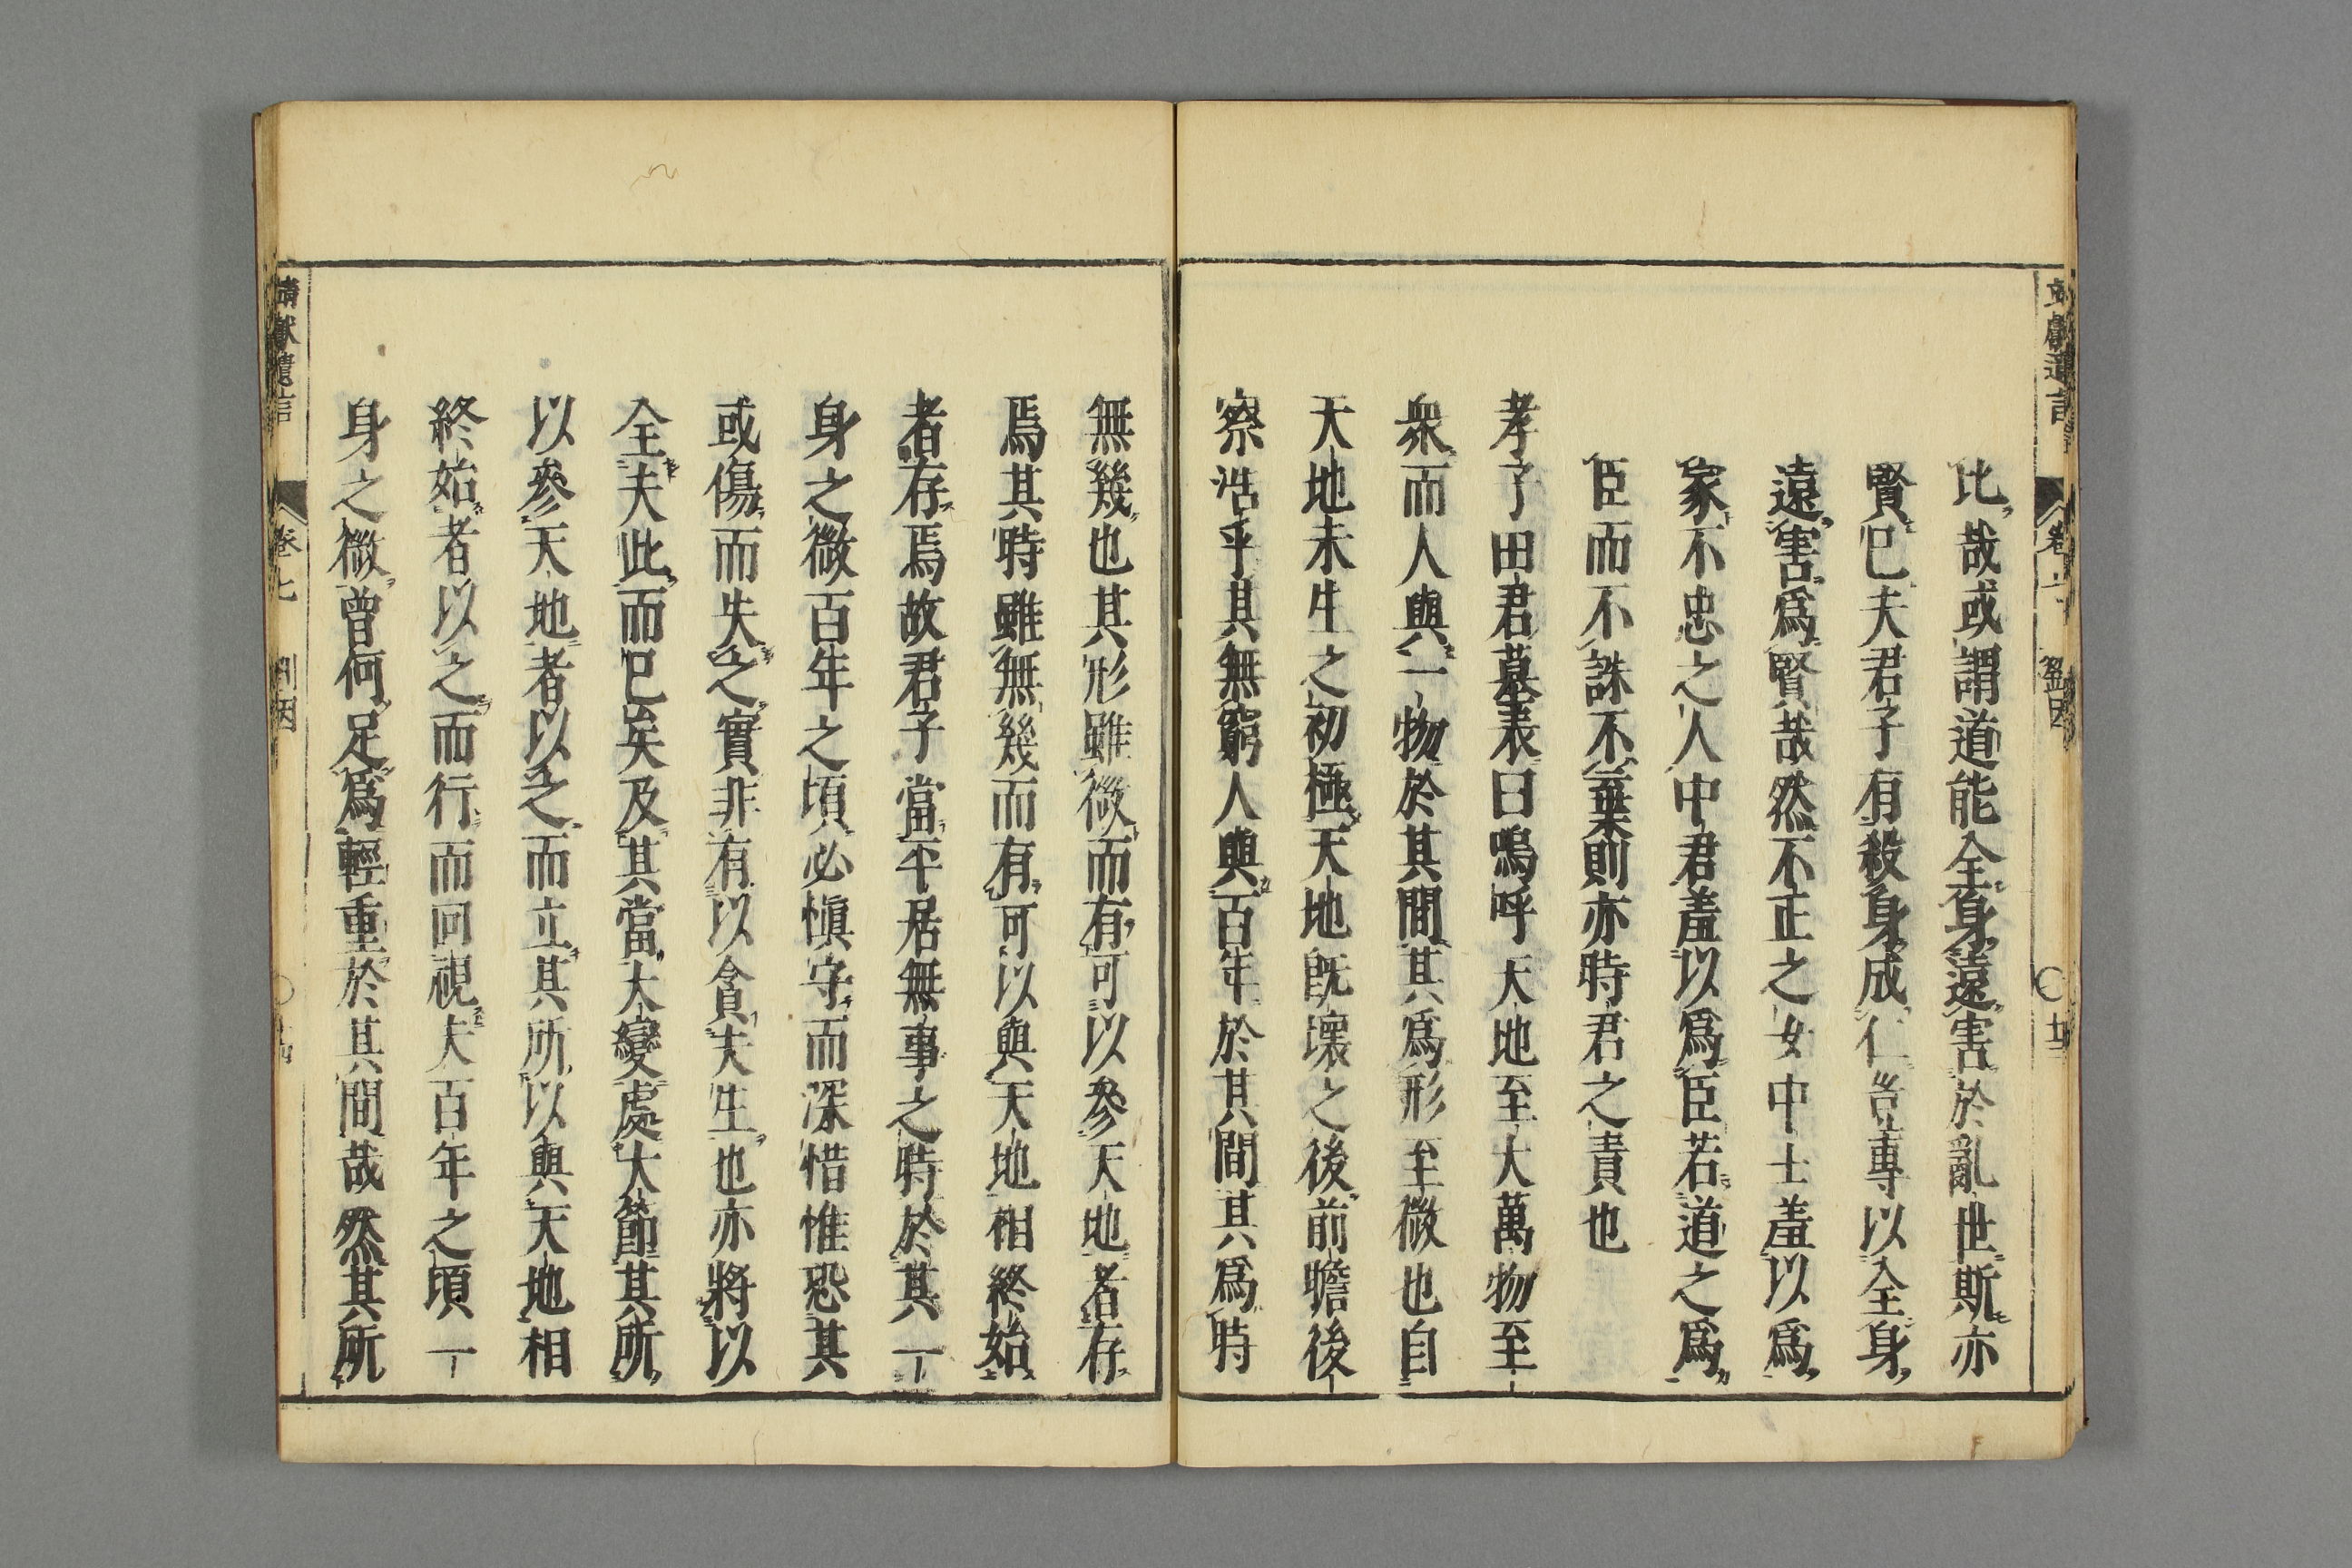 比哉或謂道能全身遠害於亂世斯亦
賢已夫君子有殺身成仁豈專以全身
遠害爲賢哉然不正之女中士羞以爲
家不忠之人中君羞以爲臣若道之爲
臣而不誅不棄則亦時君之責也
孝子田君墓表曰嗚呼天地至大萬物至
衆而人與一物於其間其爲形至微也自
天地未生之初極天地既壞之後前瞻後
察浩乎其無窮人與百年於其間其爲時
無幾也其形雖微而有可以參天地者存
焉其時雖無幾而有可以與天地相終始
者存焉故君子當平居無事之時於其一
身之微百年之頃必愼守而深惜惟恐其
或傷而失之實非有以貪夫生也亦將以
全夫此而已矣及其當大變處大節其所
以參天地者以之而立其所以與天地相
終始者以之而行而回視夫百年之頃一
身之微曾何足爲輕重於其間哉然其所
靖獻遺言
卷七
劉因